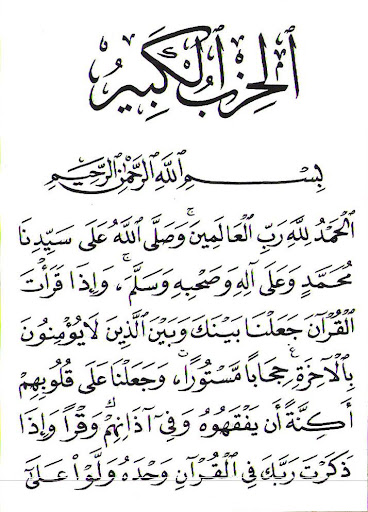 ٱلْحِزْبُ ٱلْكَبِيرُ
بِسْمِ ٱللَّهِ ٱلرَّحْمَٰنِ ٱلرَّحِيمِ
ٱلْحَمْدُ لِلَّهِ رَبِّ ٱلْعَالَمِينَ وَصَلَّى ٱللَّهُ عَلَى سَيِّدِنَا
مُحَمَّدٍ وَعَلَى آلِهِ وَصَحْبِهِ وَسَلَّمَ ، وَإِذَا قَرَأْتَ
ٱلْقُرْآنَ جَعَلْنَا بَيْنَكَ وَبَيْنَ ٱلَّذِينَ لَا يُؤْمِنُونَ
بِٱلْآخِرَةِ حِجَابًا مَّسْتُورًا ، وَجَعَلْنَا عَلَى قُلُوبِهِمْ
أَكِنَّةً أَن يَفْقَهُوهُ وَفِي آذَانِهِمْ وَقْرًا وَإِذَا
ذَكَرْتَ رَبَّكَ فِي ٱلْقُرْآنِ وَحْدَهُ وَلَّوْا۟ عَلَىٰٓ